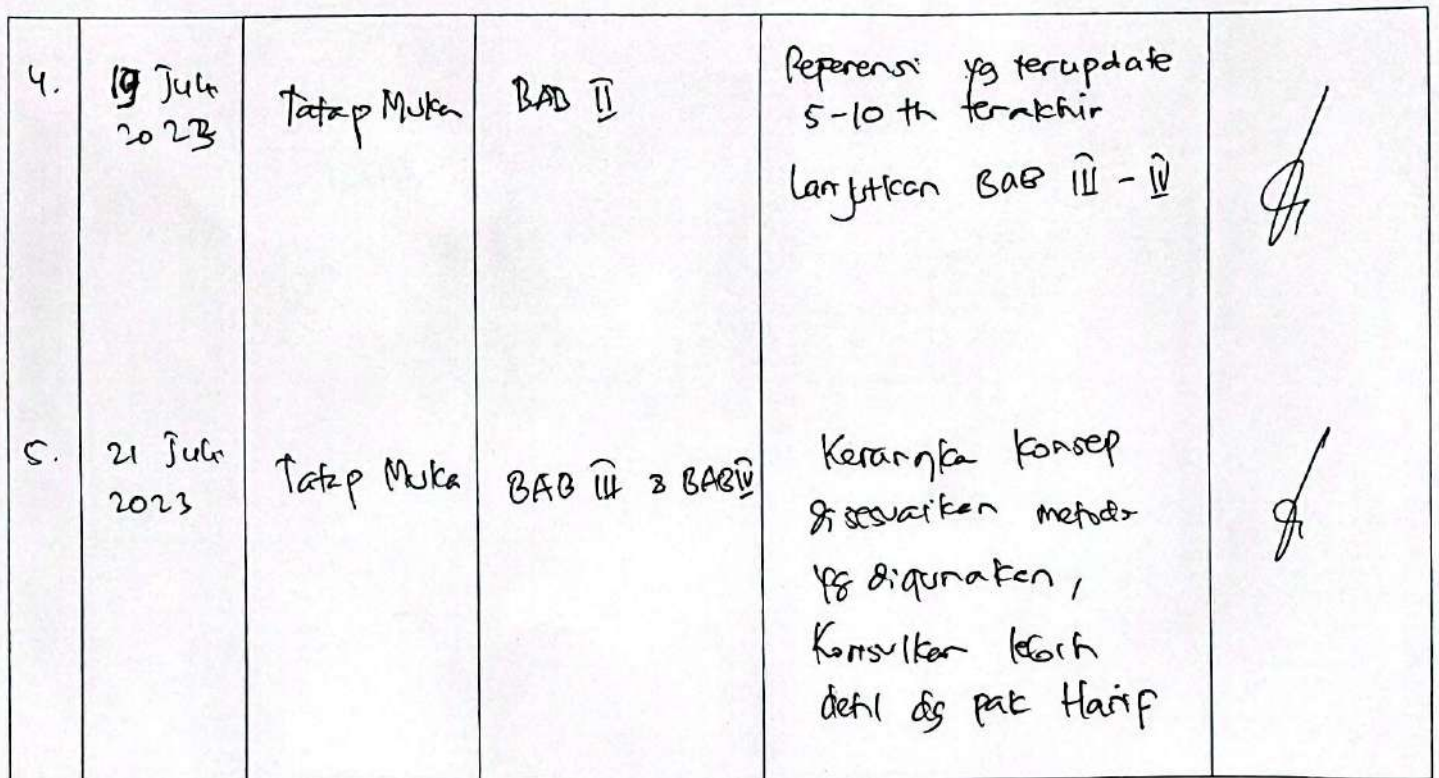 4.
19 Juli
2023
Tatap Muka
BAB II
Referensi yg terupdate
5-10 th terakhir
Lanjutkan BAB III - IV
5.
21 Juli
2023
Tatap Muka
BAB III & BAB IV
Kerangka Konsep
disesuaikan metode
yg digunakan,
Konsulkan lebih
detil dg pak Harif